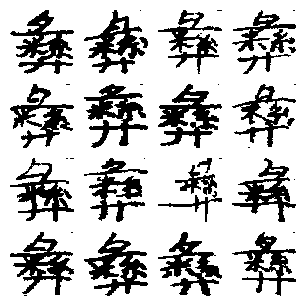 彝彝彝彝
彝彝彝彝
彝彝彝彝
彝彝彝彝